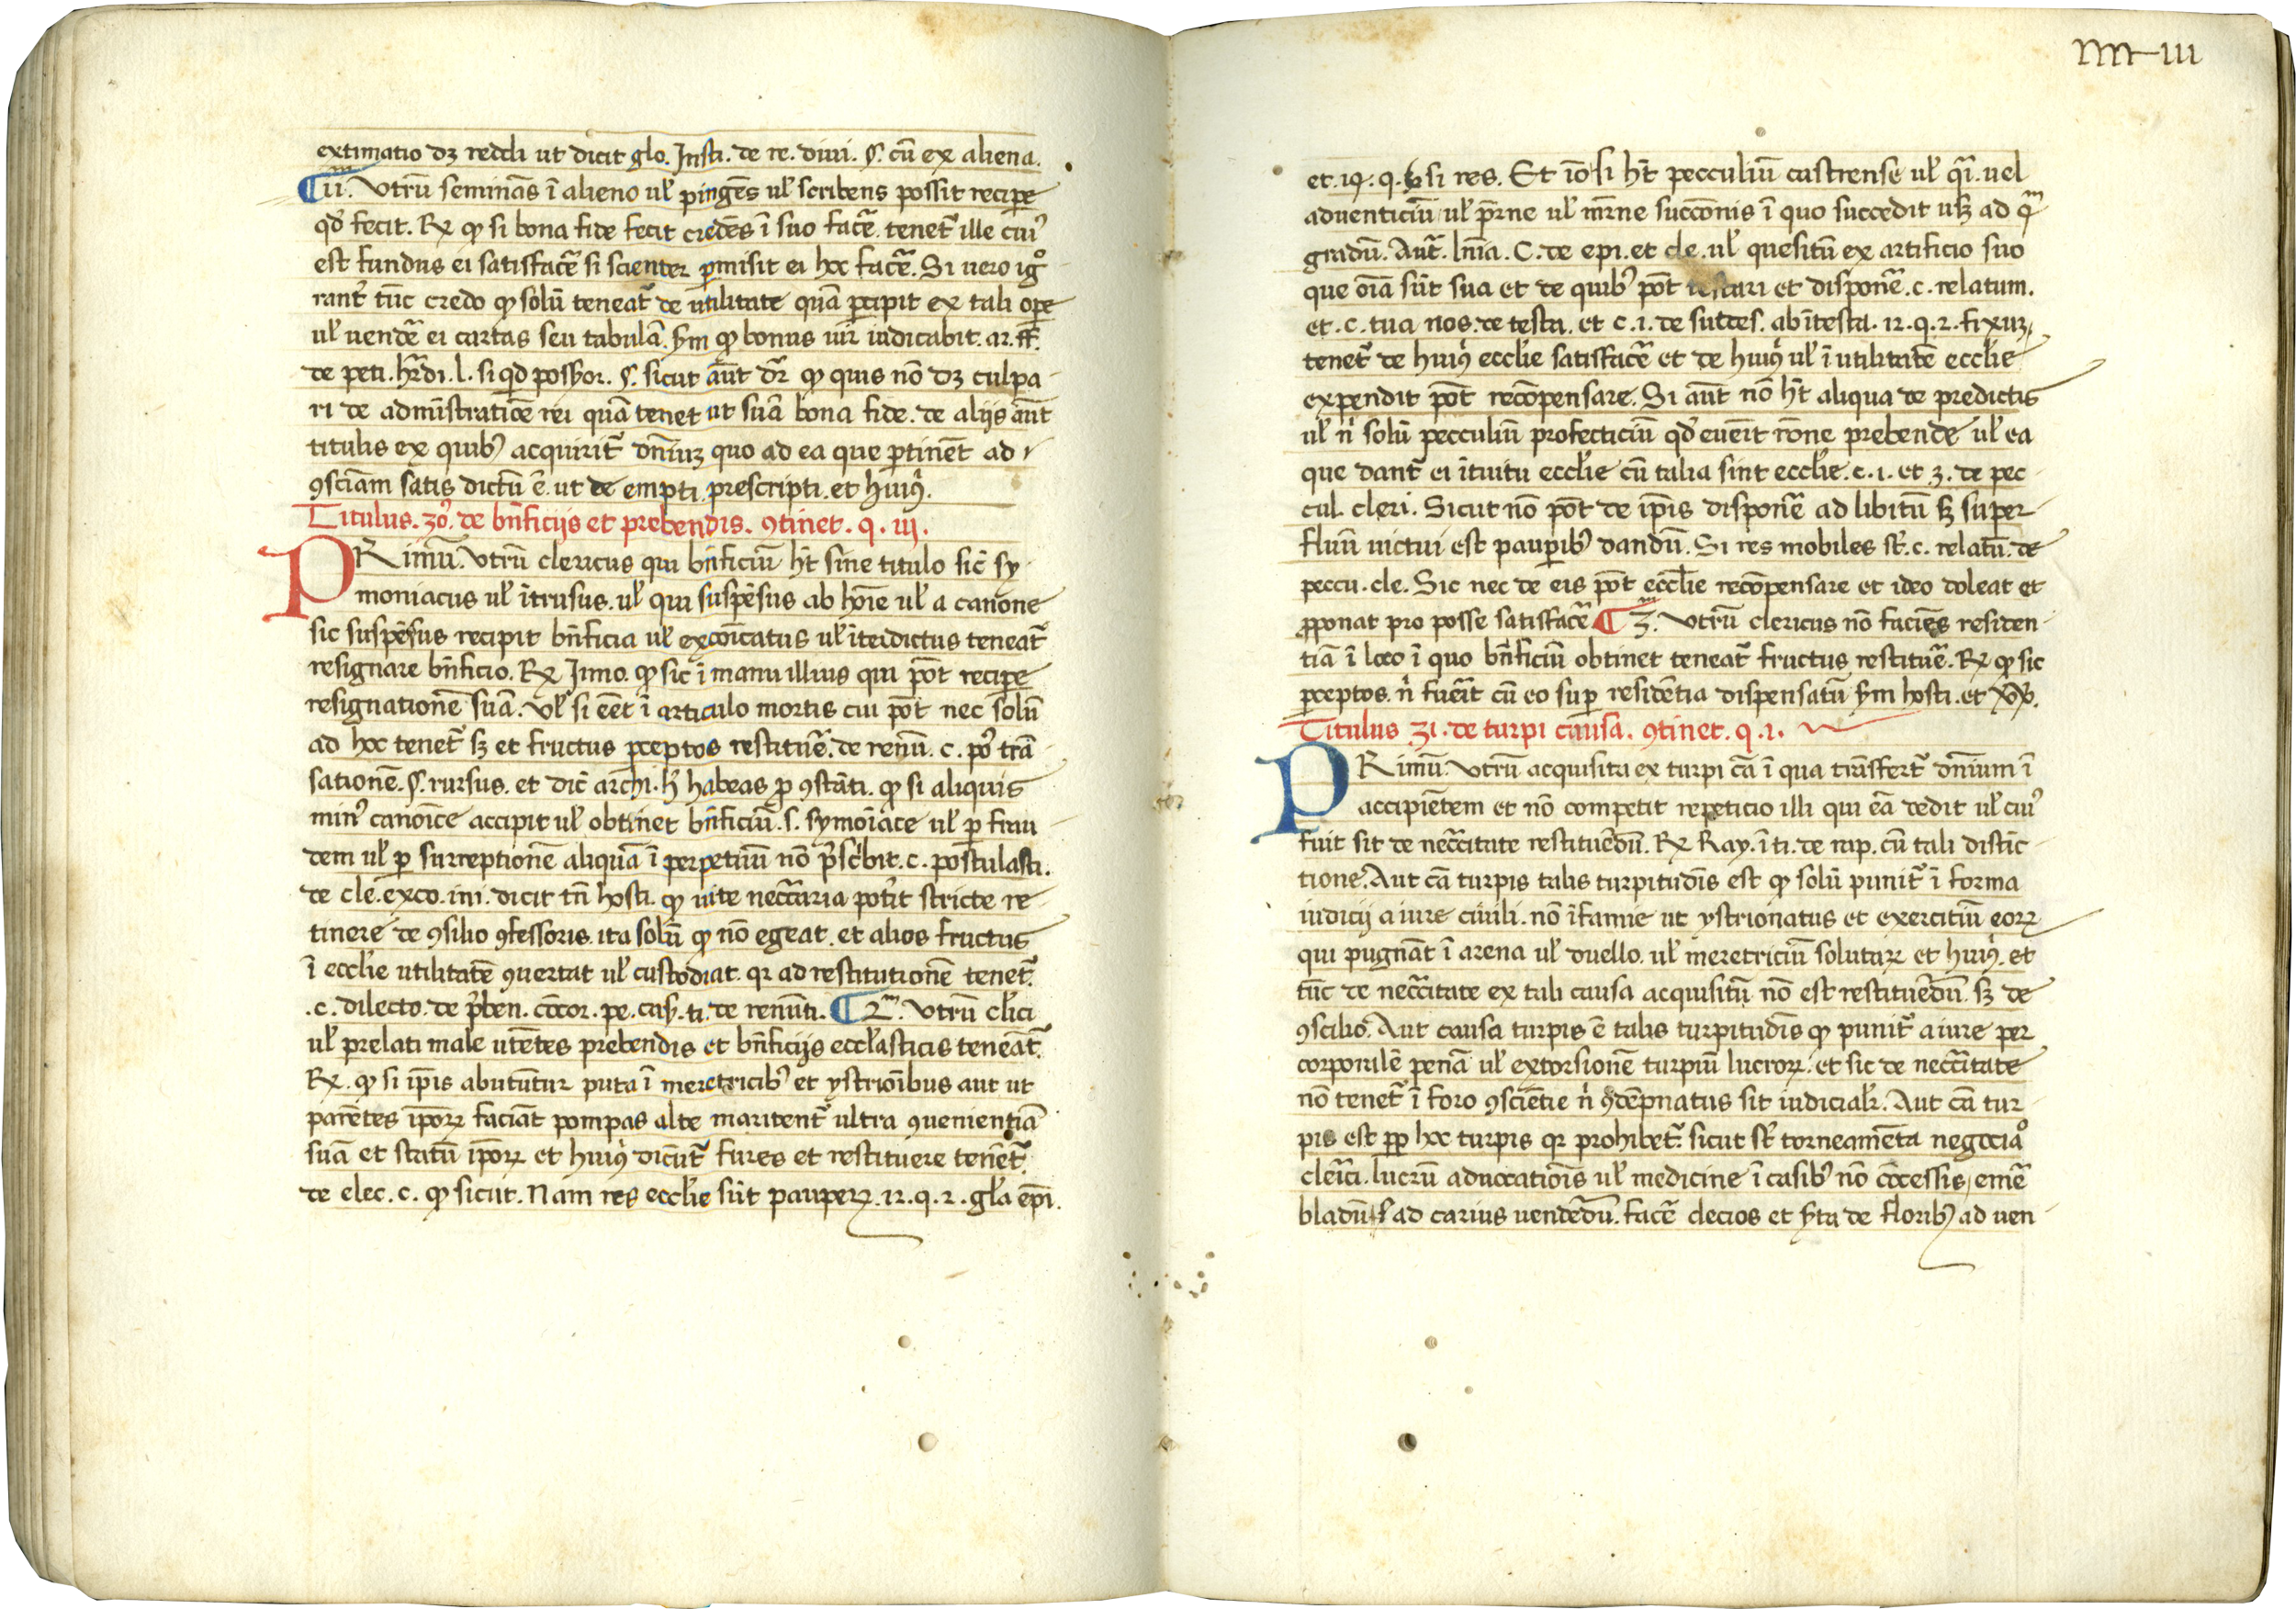 extimatio dꝫ reddi ut dicit glo. Insti. de re. diui. §. cū ex aliena.
¶ ii.ᵐ Vtrū seminās ī alieno ul̓ pingēs ul̓ scribens possit recipe
qd̓ fecit. R̷ ꝙ si bona fide fecit credēs ī suo facē tenet᷑ ille cui᷒
est fundus ei satisfacē si scienter ꝑmisit ei hoc facē. Si uero igᵒ
rant᷑ tūc credo ꝙ solū teneat᷑ de utilitate quā ꝑcipit ex tali oꝑe
ul̓ uendē ei cartas seu tabulā. ẜm ꝙ bonus uir iudicabit. ar. ff.
de peti. hr̄di. l. si qd possꝯor. §. sicut aūt dr̄ ꝙ quis nō dꝫ culpa
ri de admīstratiōe rei quā tenet ut suā bona fide. de alijs aūt
titulis ex quibꝫ acquirit᷑ dn̄iuꝫ quo ad ea que ꝑtinēt ad
ꝯsciam satis dictū ē. ut de empti. prescripti. et hui᷒ꝰ.
Titulus. 30᷒. de bn̄ficijs et prebendis. ꝯtinet. q. iij.
PRimū. Vtrū clericus qui bn̄ficiū hr̄ sine titulo sic̄ sy
moniacus ul̓ ītrusus. ul̓ qui suspēsus ab hoīe ul̓ a canone
sic suspēsus recipit bn̄ficia ul̓ excōicatus ul̓ īterdictus teneat᷑
resignare bn̄ficio. R̷ Inno. ꝙ sic ī manu illius qui pōt recipe
resignationē suā. Vl̓ si eēt ī articulo mortis cui pōt nec solū
ad hoc tenet᷑ sꝫ et fructus ꝑceptos restituē. de renū. c. po᷒ trā
sationē. §. rursus. et dic̄ archi. h᷒ habeas ꝑ ꝯstāti. ꝙ si aliquis
min᷒ canoīce accipit ul̓ obtinet bn̄ficiū. s. symoīace ul̓ ꝑ frau
dem ul̓ ꝑ surreptionē aliquā ī perpetuū nō p̄scͥbit. c. postulasti.
de cle. exco. mi. dicit tn̄ hosti. ꝙ uite necc̄aria pot᷑it stricte re
tinere de ꝯsilio ꝯfessoris. ita solū ꝙ nō egeat. et alios fructus
ī eccl̓ie utilitatē ꝯuertat ul̓ custodiat. qr ad restitutionē tenet᷑.
.c. dilecto. de p̄ben. cōcor. pe. cas. ti. de renūti. ¶ 2.ᵐ Vtrū cl̓ici
ul̓ prelati male utētes prebendis et bn̄ficijs eccl̓asticis teneāt᷑.
R̷. ꝙ si ip̄is abutūtur puta ī meretricibꝫ et ystrioībus aut ut
parētes ip̄oꝝ faciāt pompas alte maritent᷑ ultra ꝯuenientiā
suā et statū ip̄oꝝ et hui᷒ꝰ dicūt᷑ fures et restituere tenēt᷑.
de elec. c. ꝙ sicut. Nam res eccl̓ie sūt pauperꝝ. 12. q. 2. gl̓a ep̄i.
et. 19. q. si res. Et iō si hr̄ pecculiū castrense ul̓ qͣi. uel
aduenticiū ul̓ p̄rne ul̓ m̄rne succōnis ī quo succedit usꝫ ad qͬᵐ
gradū. Aut᷑. ln̄ia. C. de epi. et cle. ul̓ quesitū ex artificio suo
que oīa sūt sua et de quibꝫ pōt testari et disponē. c. relatum.
et. c. tua nos. de testa. et c. 1. de succes. ab ītesta. 12. q. 2. fixuꝫ
tenet᷑ de hui᷒ꝰ eccl̓ie satisfacē et de hui᷒ꝰ ul̓ ī utilitatē eccl̓ie
expendit pōt recōpensare. Si aūt nō hr̄ aliqua de predictis
ul̓ nͥ solū pecculiū profecticiū qd̓ euēit rōne prebende ul̓ ea
que dant᷑ ei ītuitu eccl̓ie cū talia sint eccl̓ie. c. 1. et 3. de pec
cul. cleri. Sicut nō pōt de ip̄is disponē ad libitū sꝫ super
fluū uictui est pauꝑibꝫ dandū. Si res mobiles st᷑. c. relatū. de
peccu. cle. Sic nec de eis pōt eccl̓ie recōpensare et ideo doleat et
ꝓponat pro posse satisfacē ¶ 3.ᵐ Vtrū clericus nō faciēs residen
tiā ī loco ī quo bn̄ficiū obtinet teneat᷑ fructus restituē. R̷ ꝙ sic
ꝑceptos. nͥ fuēit cū eo suꝑ residētia dispensatū ẜm hosti. et
Titulus 31. de turpi causa. ꝯtinet. q. 1.
PRimū. Vtrū acquisita ex turpi cā ī qua trāsfert᷑ dn̄ium ī
accipiētem et nō competit repeticio illi qui eā dedit ul̓ cui᷒
fuit sit de necc̄itate restituēdū. R̷ Ray. ī ti. de rap. cū tali distīc
tione. Aut cā turpis talis turpitudīs est ꝙ solū punit᷑ ī forma
iudicij a iure ciuili. nō īfamie ut ystrionatus et exercitiū eoꝝ
qui pugnāt ī arena ul̓ duello. ul̓ meretriciū solutaꝝ et hui᷒ꝰ. et
tūc de necc̄itate ex tali causa acquisitū nō est restituēdū. sꝫ de
ꝯscilio. Aut causa turpis ē talis turpitudīs ꝙ punit᷑ a iure per
corporalē penā ul̓ extorsionē turpiū lucroꝝ. et sic de necc̄itate
nō tenet᷑ ī foro ꝯsciētie nͥ ꝯdēpnatus sit iudicial̓r. Aut cā tur
pis est ꝓp hoc turpis qr prohibet᷑ sicut st᷑ torneamēta negociaᵒ
cler̄ici. lucrū aduocatiōis ul̓ medicine ī casibꝫ nō cōcessis, emē
bladū ad carius uendēdū. facē decios et ẜta de floribꝫ ad uen